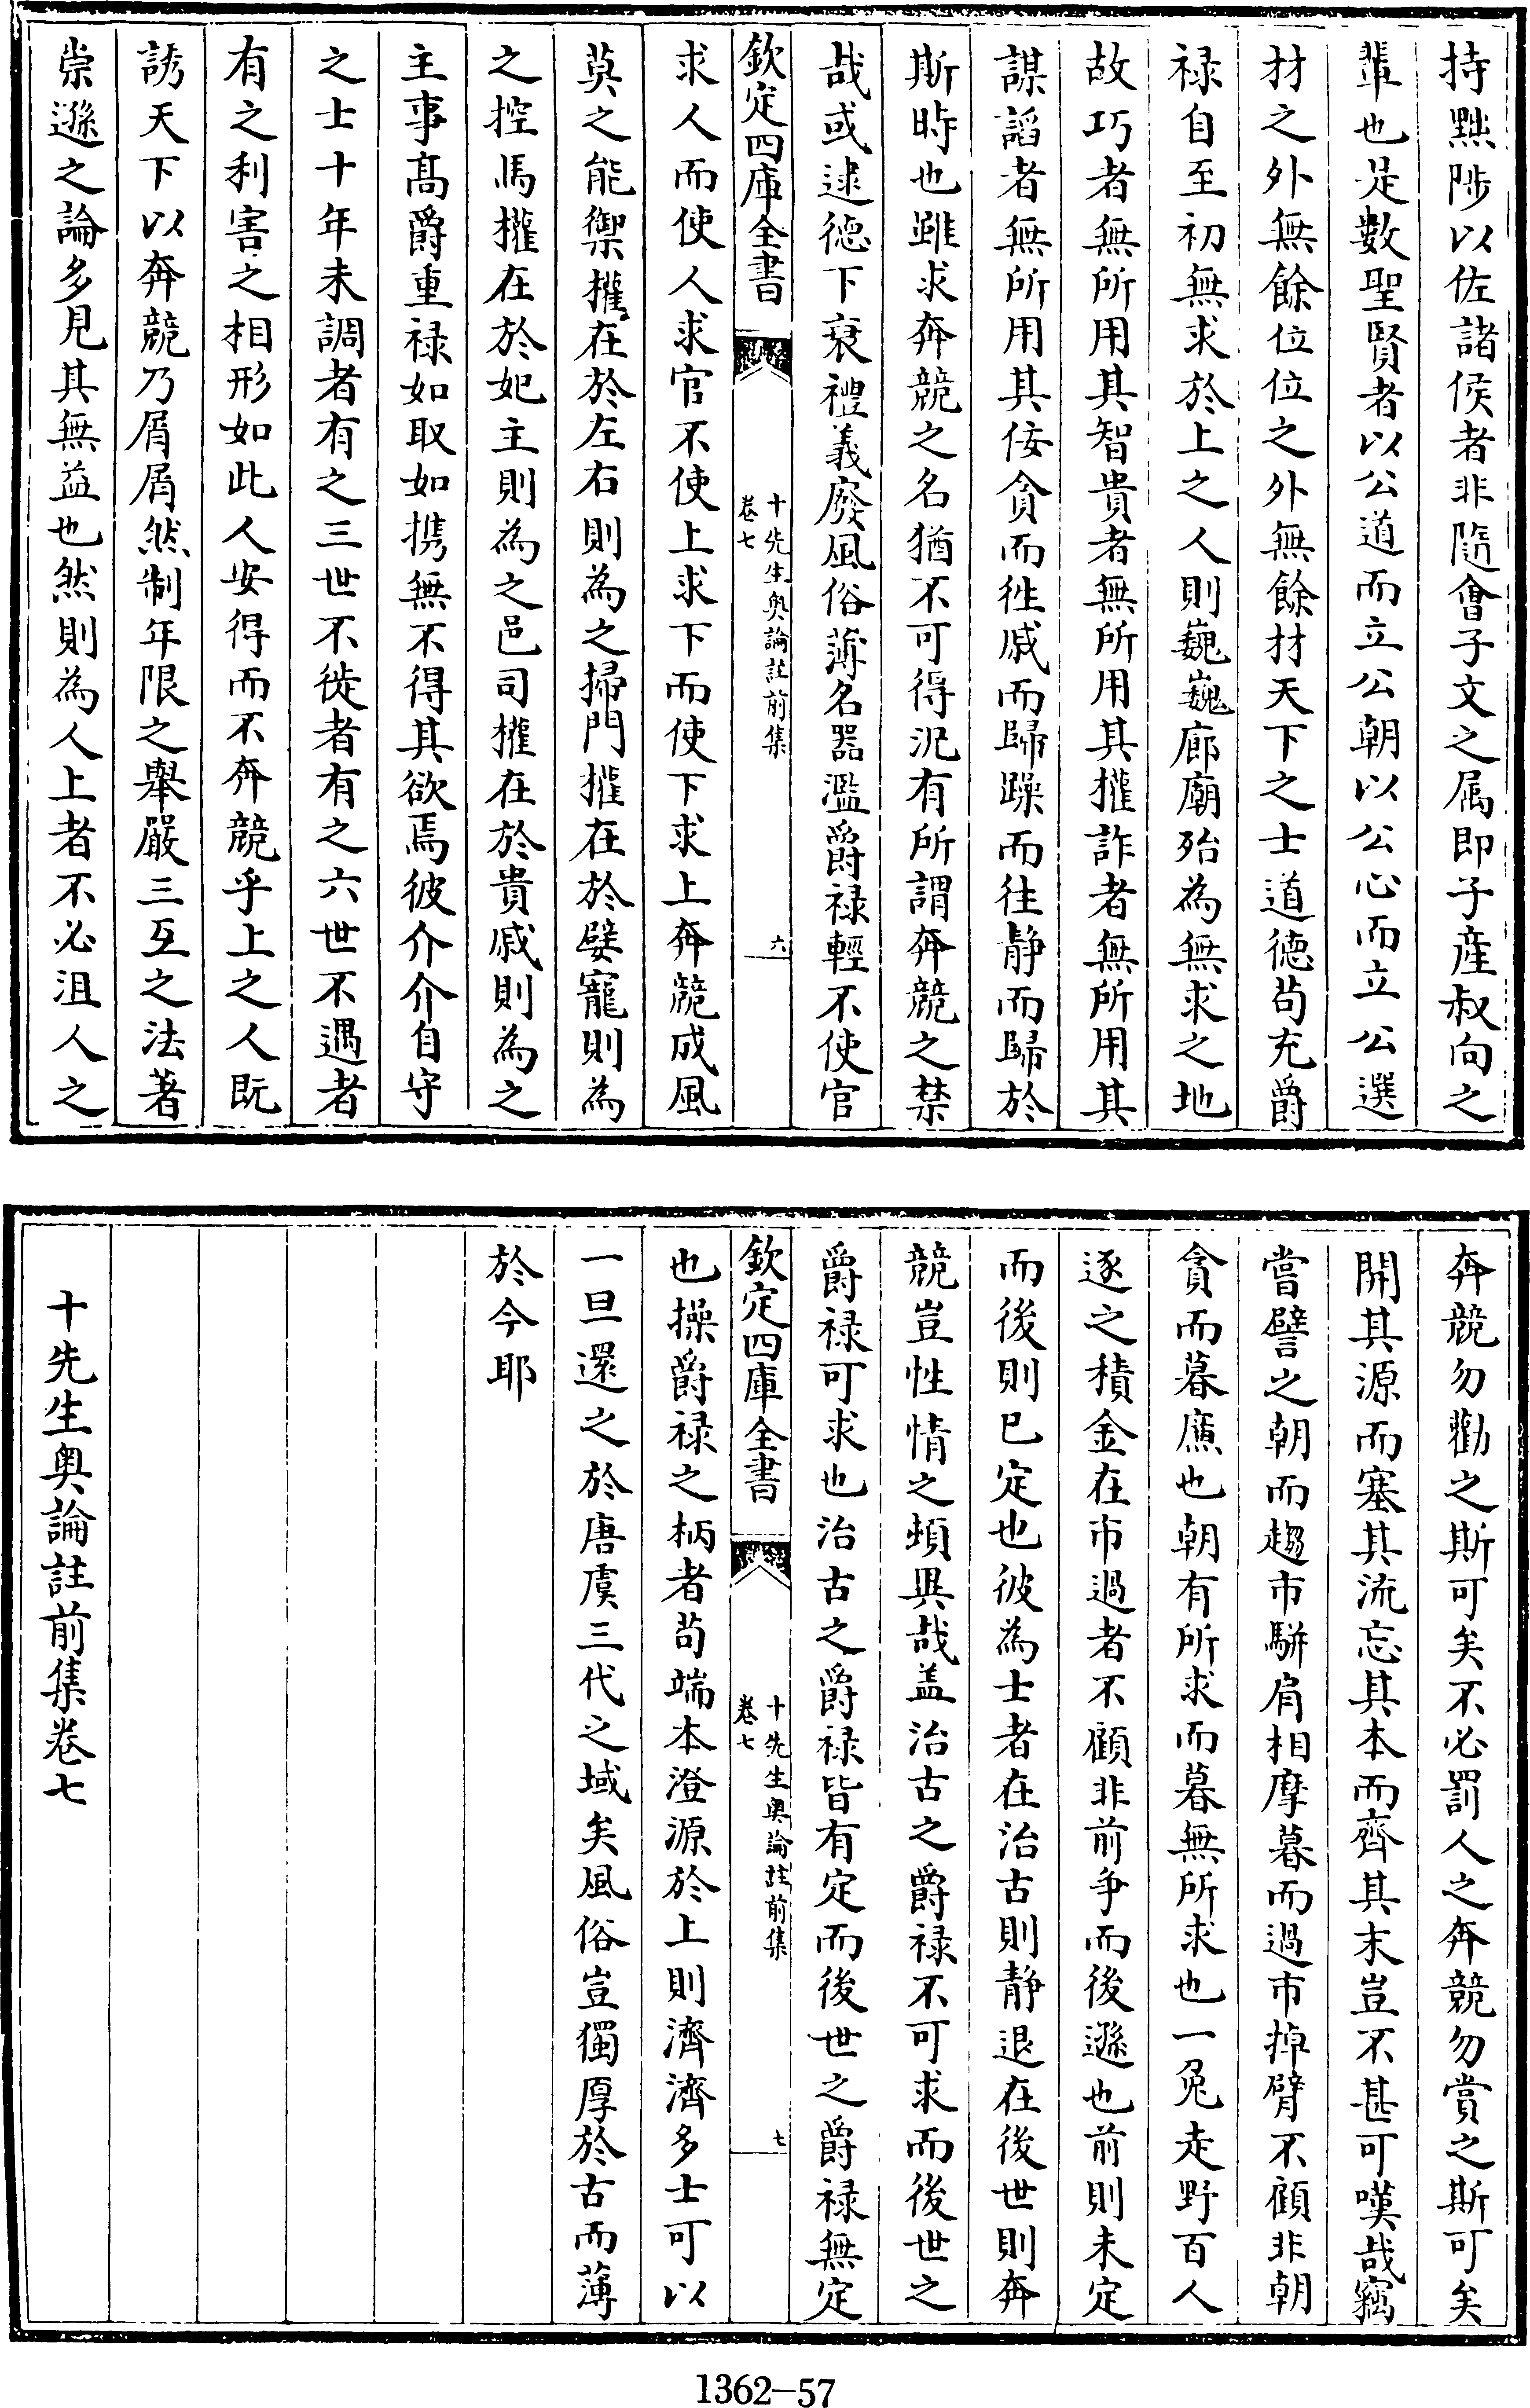 持黜陟以佐諸侯者非隨會子文之属即子産叔向之
輩也是數聖賢者以公道而立公朝以公心而立公選
材之外無餘位位之外無餘材天下之士道德茍充爵
禄自至初無求於上之人則巍巍廊廟殆為無求之地
故巧者無所用其智貴者無所用其權詐者無所用其
謀謟者無所用其佞貪而徃戚而歸躁而往静而歸於
斯時也雖求奔競之名猶不可得况有所謂奔競之禁
哉或逮德下衰禮義廢風俗薄名器濫爵禄輕不使官
欽定四庫全書
十先生奥論註前集
卷七
六
求人而使人求官不使上求下而使下求上奔競成風
莫之能禦權在於左右則為之掃門權在於嬖寵則為
之控馬權在於妃主則為之邑司權在於貴戚則為之
主事髙爵重禄如取如携無不得其欲焉彼介介自守
之士十年未調者有之三世不徙者有之六世不遇者
有之利害之相形如此人安得而不奔競乎上之人既
誘天下以奔競乃屑屑然制年限之舉嚴三互之法著
崇遜之論多見其無益也然則為人上者不必沮人之
奔競勿勸之斯可矣不必罰人之奔競勿賞之斯可矣
開其源而塞其流忘其本而齊其末豈不甚可嘆哉竊
嘗譬之朝而趨市駢肩相摩暮而過市掉臂不顧非朝
貪而暮廉也朝有所求而暮無所求也一兔走野百人
逐之積金在市過者不顧非前争而後遜也前則未定
而後則已定也彼為士者在治古則静退在後世則奔
競豈性情之頓異哉盖治古之爵禄不可求而後世之
爵禄可求也治古之爵禄皆有定而後世之爵禄無定
欽定四庫全書
十先生奥論註前集
卷七
七
也操爵禄之柄者茍端本澄源於上則濟濟多士可以
一旦還之於唐虞三代之域矣風俗豈獨厚於古而薄
於今耶
十先生奥論註前集卷七
1362-57